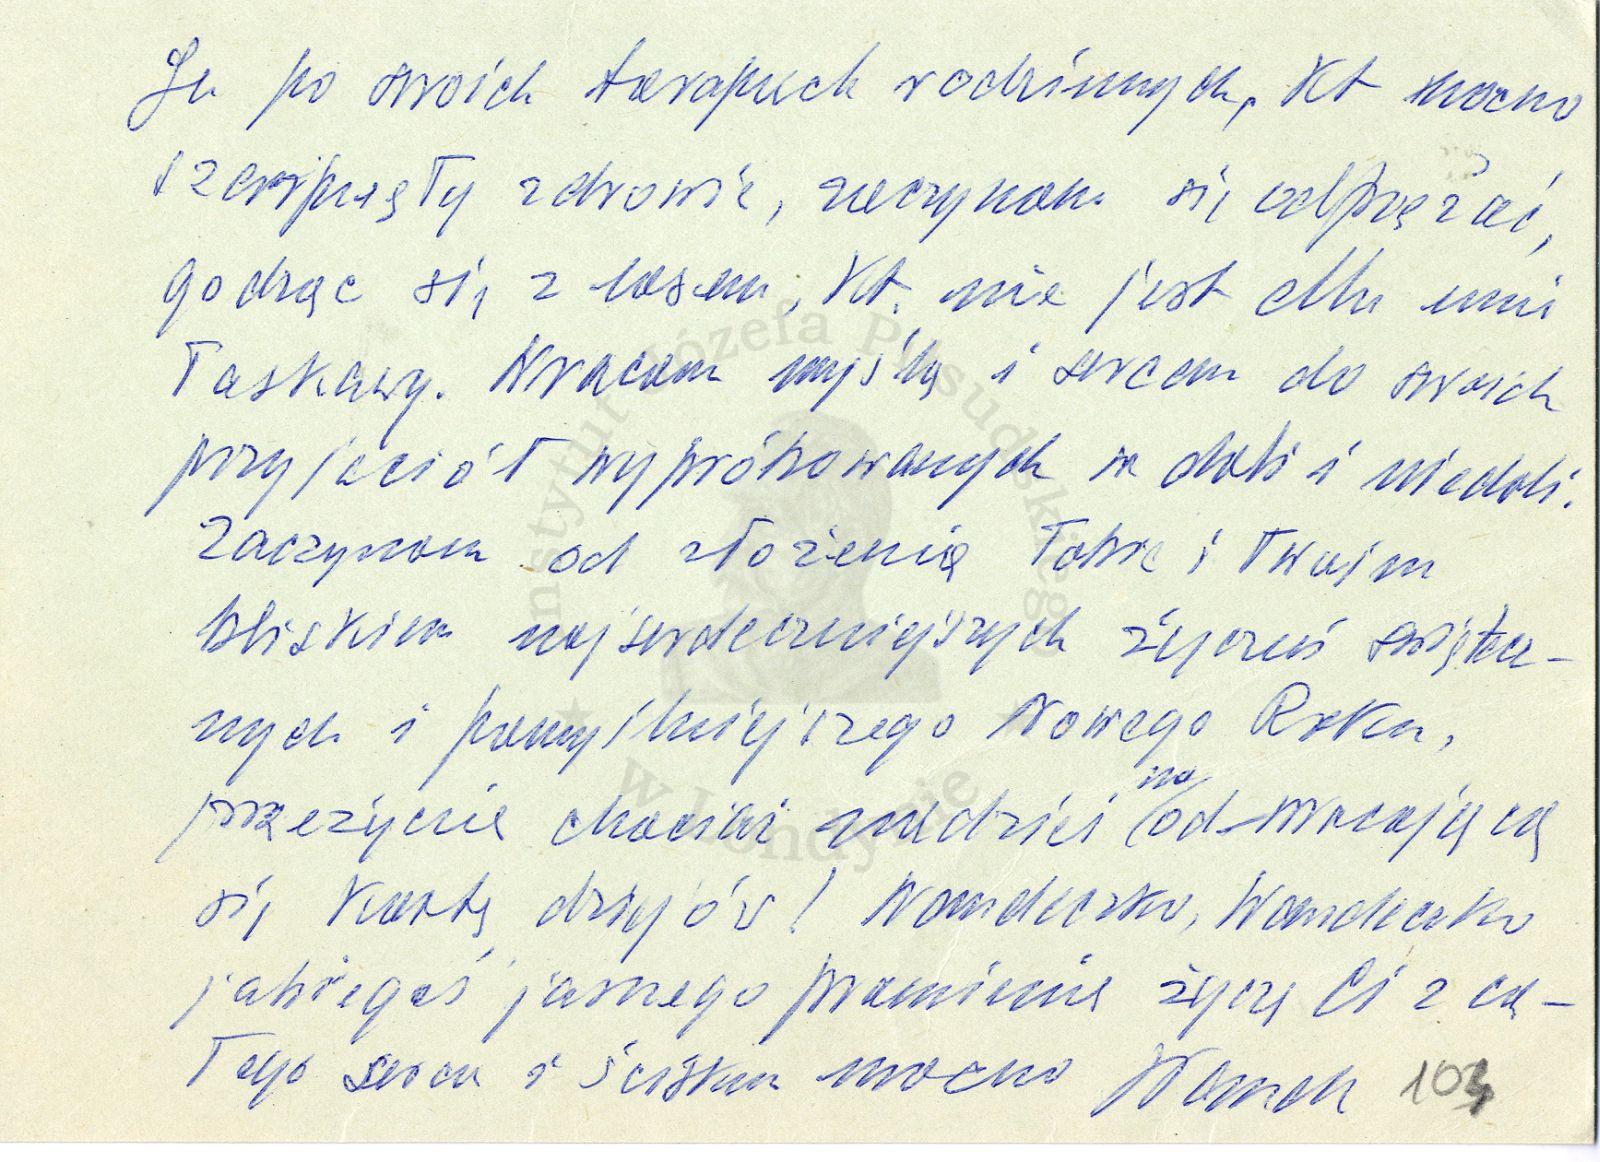 Ja po swoich terapiach rodzinnych, kt mocno
szarpnęły zdrowie, zaczynam się odprężać,
godząc się z losem, kt. nie jest dla mni
łaskawy. Wracam myślą i sercem do swoich
przyjaciół wypróbowanych w doli i niedoli.
Zaczynam od złożenia Tobie i Twoim
bliskim najserdeczniejszych życzeń świątecz-
nych i pomyślniejszego Nowego Roku,
przeżycia chociaż nadziei na od-wracającą
się kartę dziejów! Wandeczko, Wandeczko
jakiegoś jasnego promienia życzę Ci z ca-
łego serca i ściskam mocno Wanda 103
Instytut Józefa Piłsudskiego
w Londynie